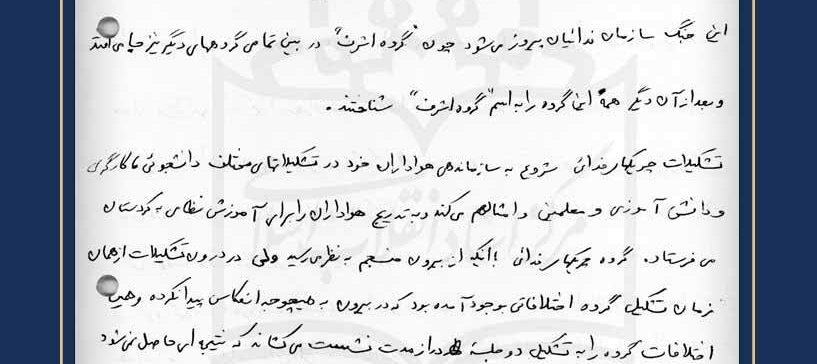 این جنگ سازمان فدائیان پیروز می‌شود چون "گروه اشرف" در بین تمامی گروههای دیگر نیز جا می‌افتد
و بعد از آن دیگر همه این گروه را به اسم "گروه اشرف" شناختند.
تشکیلات چریکهای فدائی شروع به سازماندهی هواداران خود در تشکیلاتهای مختلف دانشجوئی و کارگری
و دانش آموزی و معلمین و امثالهم می‌کند و به تدریج هواداران را برای آموزش نظامی به کردستان
می‌فرستاد. گروه چریکهای فدائی با آنکه از بیرون منسجم به نظر می‌رسید ولی در درون تشکیلات از همان
زمان تشکیل گروه اختلافاتی بوجود آمده بود که در بیرون به هیچوجه انعکاس پیدا نکرده و همین
اختلافات گروه را به تشکیل دو جلسه دراز مدت نشست می‌کشاند که نتیجه‌ای حاصل نمی‌شود
مرکز اسناد انقلاب اسلامی